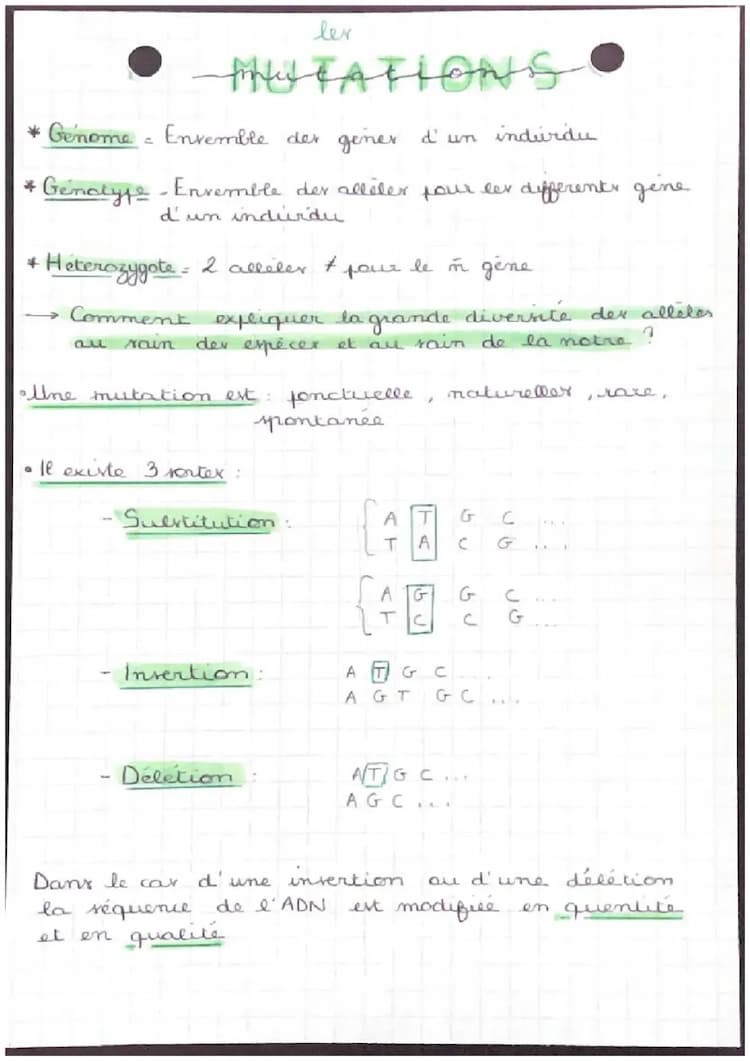 les
MUTATIONS
mutations
* Génome = Ensemble des gènes d'un individu
* Génotype = Ensemble des allèles pour les différents gène
d'un individu
* Hétérozygote = 2 allèles ≠ pour le m̃ gène
→ Comment expliquer la grande diversité des allèles
au sain des espèces et au sain de la notre ?
• Une mutation est : ponctuelle, naturelles, rare,
spontanée
• Il existe 3 sortes :
- Substitution : A T G C ...
T A C G ...
A G G C ...
T C C G ...
- Insertion : A T G C ...
A G T G C ...
- Délétion : A T G C ...
A G C ...
Dans le cas d'une insertion ou d'une délétion
la séquence de l'ADN est modifiée en quentité
et en qualité